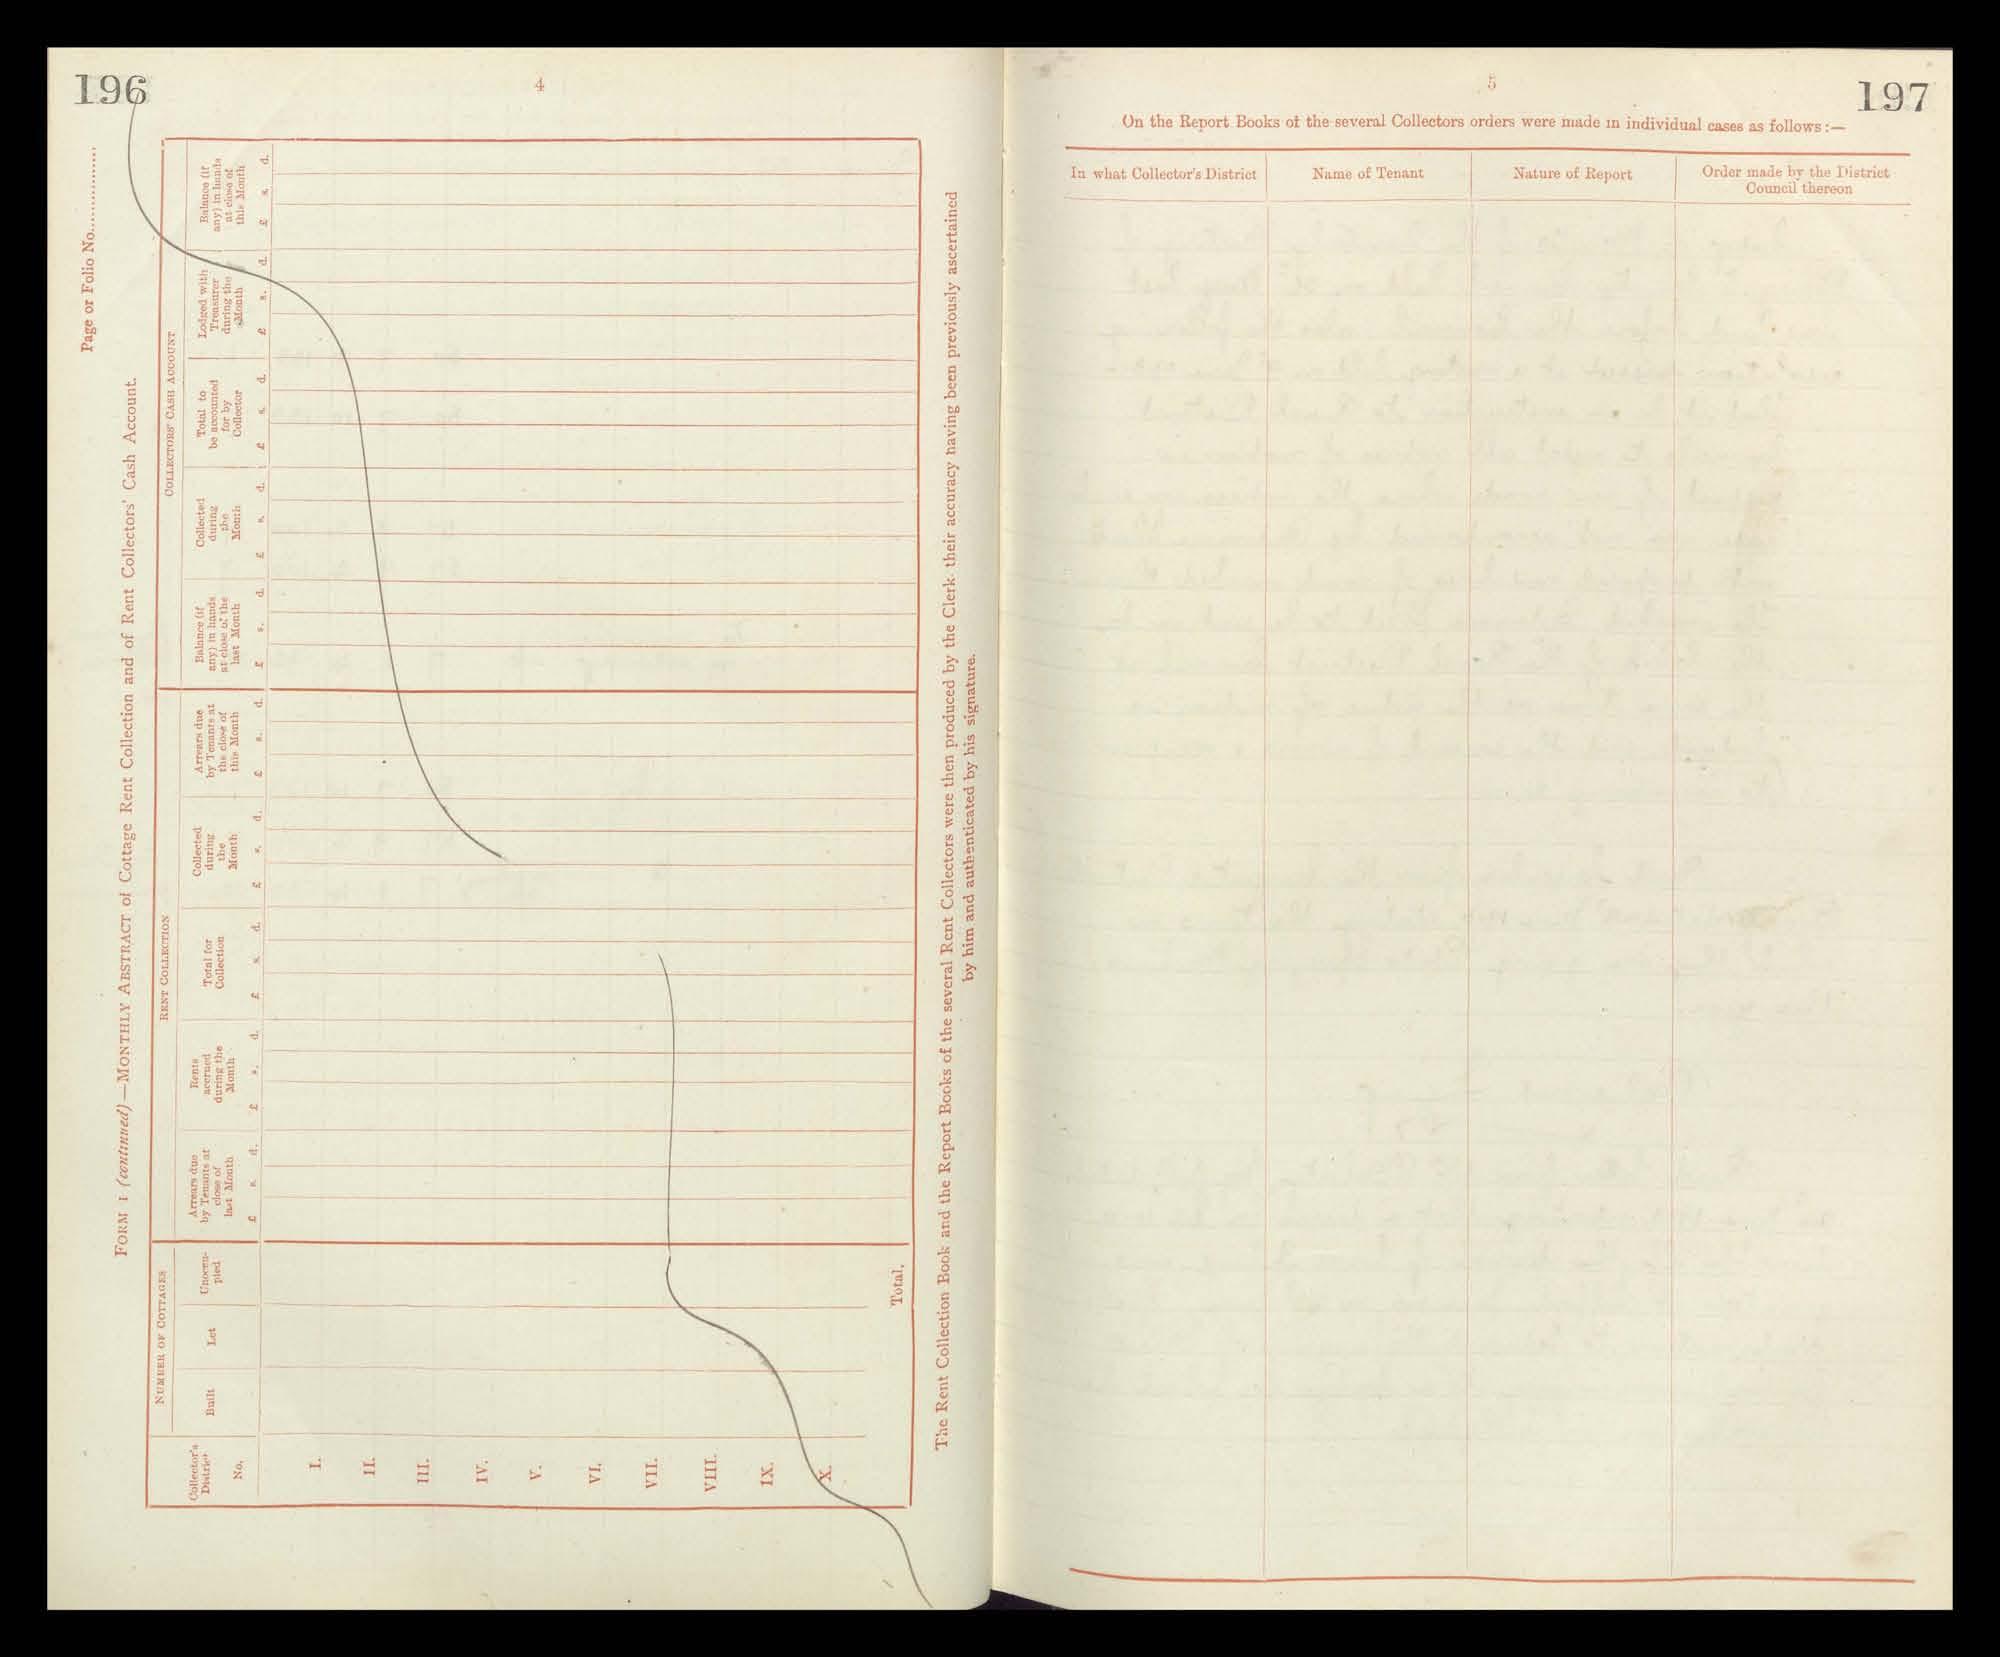 196
4
Page or Folio No.................
FORM 1 (continued)—MONTHLY ABSTRACT of Cottage Rent Collection and of Rent Collectors' Cash Account.
NUMBER OF COTTAGES
RENT COLLECTION
COLLECTORS' CASH ACCOUNT
Collector's
District
No.
Built
Let
Unoccu-
pied
Arrears due
by Tenants at
close of
last Month
Rents
accrued
during the
Month
Total for
Collection
Collected
during
the
Month
Arrears due
by Tenants at
the close of
this Month
Balance (if
any) in hands
at close of the
last Month
Collected
during
the
Month
Total to
be accounted
for by
Collector
Lodged with
Treasurer
during the
Month
Balance (if
any) in hands
at close of
this Month
£ s. d. £ s. d. £ s. d. £ s. d. £ s. d. £ s. d. £ s. d. £ s. d. £ s. d. £ s. d.
I.
II.
III.
IV.
V.
VI.
VII.
VIII.
IX.
X.
Total,
The Rent Collection Book and the Report Books of the several Rent Collectors were then produced by the Clerk, their accuracy having been previously ascertained
by him and authenticated by his signature.
5
197
On the Report Books of the several Collectors orders were made in individual cases as follows:—
In what Collector's District
Name of Tenant
Nature of Report
Order made by the District
Council thereon